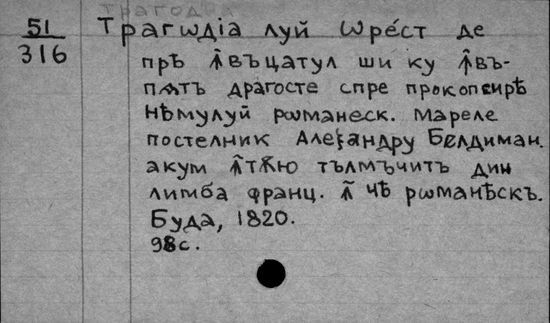 51
316
Трагѡдіа луй ѡре́ст де
прѣ ꙟ̂въцатул ши ку ꙟ̂въ-
пѫтъ драгосте спре прокопсирѣ
нѣмулуй рѡманеск. Мареле
постелник Алеѯандру Белдиман.
акум ꙟ̂тѫю тълмъчит дин
лимба франц. ꙟ̂ чѣ рѡманѣскъ.
Буда, 1820.
98с.